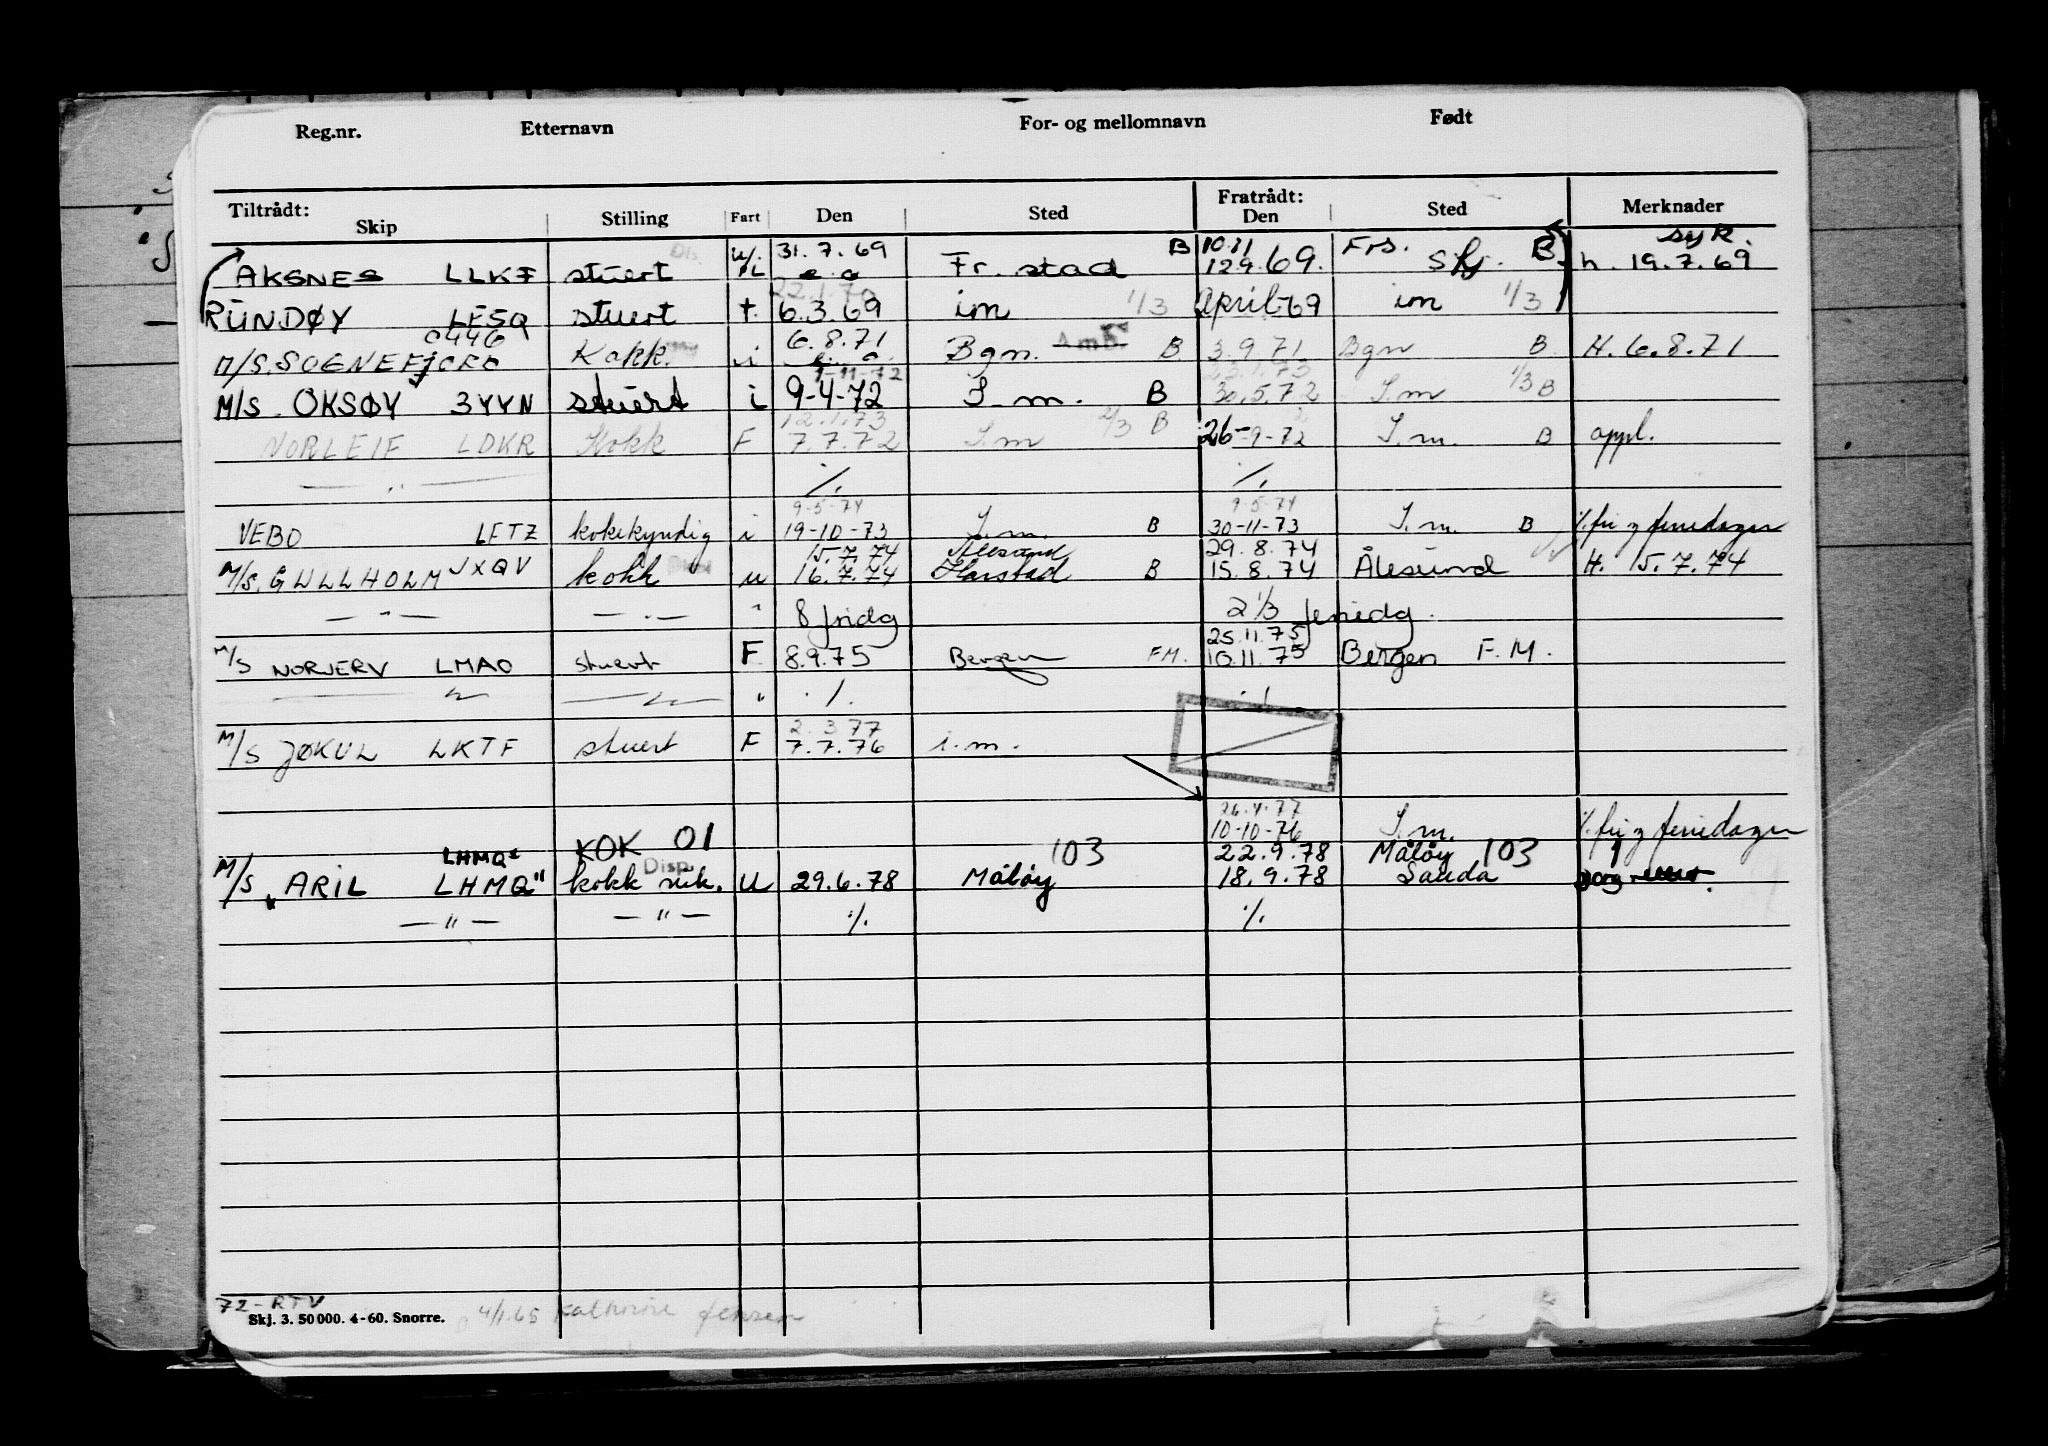 Reg.nr. Etternavn For- og mellomnavn Født
Tiltrådt: Skip Stilling Fart Den Sted Fratrådt: Den Sted Merknader
31.7.69 B 10.11 Frs. B syk.
AKSNES LLKF stuert Fr. stad 129.69. Skj. h. 19.7.69
22.1.70
RUNDØY LESQ stuert t. 6.3.69 im 1/3 April-69 im 1/3
0446 6.8.71
M/S. SOGNEFJORD Kokk. i Bgn. Amb. B 3.9.71 Bgn B H. 6.8.71
1-11-72 23.1.73
M/S OKSØY 3YYN stuert i 9-4-72 I. m. B 30.5.72 I.m 1/3 B
12.1.73
NORLEIF LDKR Kokk F 7.7.72 I.m 2/3 B 26-9-72 I.m. B appl.
— " — ·/. ·/.
9-5-74 9-5-74
VEBO LFTZ kokkyndig i 19-10-73 I.m. B 30-11-73 I.m. B ·/. fri og feriedager
15.7.74 Ålesund 29.8.74
M/S. GULLHOLM JXQV kokk u 16.7.74 Harstad B 15.8.74 Ålesund H. 15.7.74
— " — — " — " 8 fridg 2 1/3 feriedg.
25.11.75
M/S NORJERV LMAO stuert F 8.9.75 Bergen FM. 10.11.75 Bergen F.M.
— " — — " — " ·/. ·/.
2.3.77
M/S JØKUL LKTF stuert F 7.7.76 i.m.
26.4.77
10-10-76 I.m. ·/. fri og feriedager
LHMQ KOK 01 103 22.9.78 Måløy 103
M/S "ARIL LHMQ" kokk vik. Disp. U 29.6.78 Måløy 18.9.78 Sauda
— " — — " — ·/. ·/.
72-RTV
Skj. 3. 50 000. 4-60. Snorre. 4/1.65 Kathrine Jensen